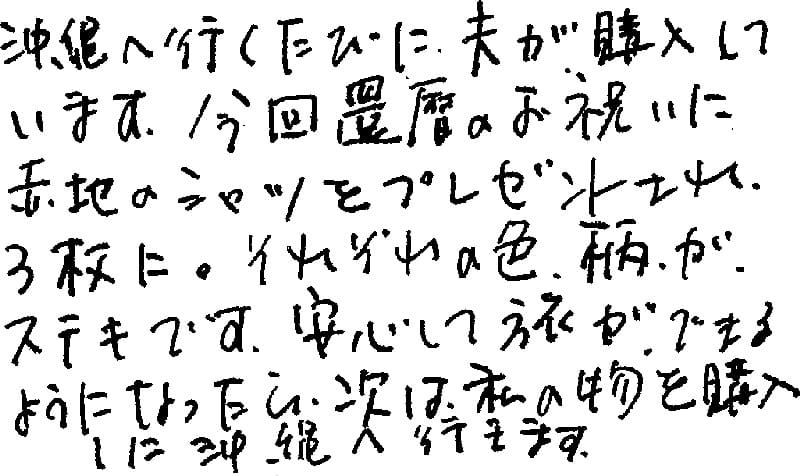 沖縄へ行くたびに、夫が購入して
います。今回還暦のお祝いに
赤地のシャツをプレゼントされ、
3枚に。それぞれの色、柄、が、
ステキです。安心して旅ができる
ようになったら、次は、私の物を購入
しに沖縄へ行きます。